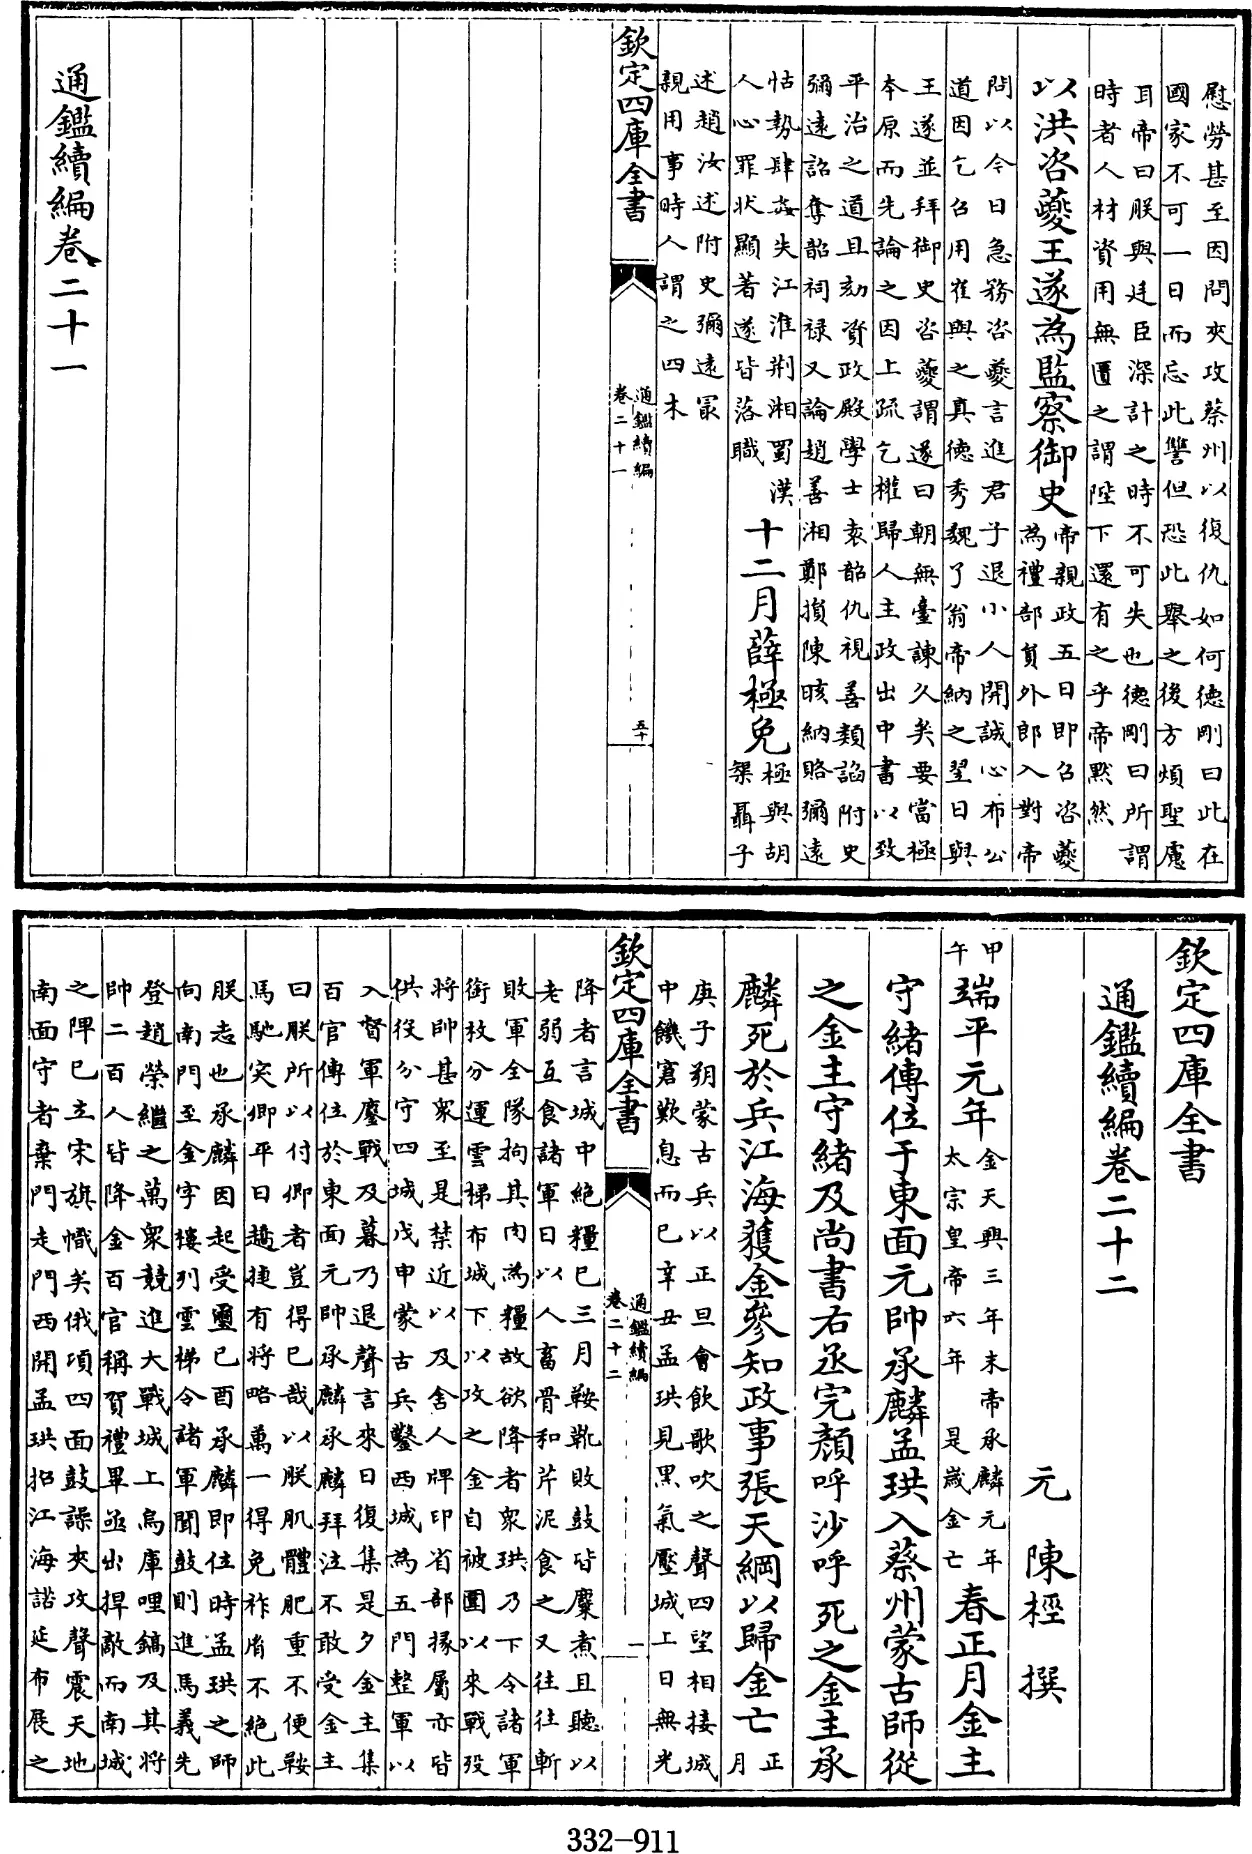 慰勞甚至因問夾攻蔡州以復仇如何德剛曰此在
國家不可一日而忘此讐但恐此舉之後方煩聖慮
耳帝曰朕與廷臣深計之時不可失也德剛曰所謂
時者人材資用無匱之謂陛下還有之乎帝默然
以洪咨夔王遂為監察御史
帝親政五日即召咨夔
為禮部員外郎入對帝
問以今日急務咨夔言進君子退小人開誠心布公
道因乞召用崔與之真德秀魏了翁帝納之翌日與
王遂並拜御史咨夔謂遂曰朝無臺諫久矣要當極
本原而先論之因上疏乞權歸人主政出中書以致
平治之道且劾資政殿學士袁韶仇視善類諂附史
彌遠詔奪韶祠祿又論趙善湘鄭損陳晐納賂彌遠
怙勢肆姦失江淮荆湘蜀漢
人心罪狀顯著遂皆落職
十二月薛極免
極與胡
榘聶子
述趙汝述附史彌遠冣
親用事時人謂之四木
欽定四庫全書
通鑑續編
卷二十一
五十
通鑑續編卷二十一
欽定四庫全書
通鑑續編卷二十二
元 陳桱 撰
甲
午
端平元年
金天興三年末帝承麟元年
太宗皇帝六年 是歲金亡
春正月金主
守緒傳位于東面元帥承麟孟珙入蔡州蒙古師從
之金主守緒及尚書右丞完顔呼沙呼死之金主承
麟死於兵江海獲金參知政事張天綱以歸金亡
正
月
庚子朔蒙古兵以正旦會飲歌吹之聲四望相接城
中饑窘歎息而已辛丑孟珙見黑氣壓城上日無光
降者言城中絶糧已三月鞍靴敗鼓皆糜煮且聽以
老弱互食諸軍日以人畜骨和芹泥食之又往往斬
敗軍全隊拘其肉為糧故欲降者衆珙乃下令諸軍
銜枚分運雲梯布城下以攻之金自被圍以來戰殁
將帥甚衆至是禁近以及舍人牌印省部掾屬亦皆
供役分守四城戊申蒙古兵鑿西城為五門整軍以
入督軍鏖戰及暮乃退聲言來日復集是夕金主集
百官傳位於東面元帥承麟承麟拜泣不敢受金主
曰朕所以付卿者豈得已哉以朕肌體肥重不便鞍
馬馳突卿平日趫捷有將略萬一得免祚胤不絶此
朕志也承麟因起受璽已酉承麟即位時孟珙之師
向南門至金字樓列雲梯令諸軍聞鼓則進馬義先
登趙榮繼之萬衆競進大戰城上烏庫哩鎬及其將
帥二百人皆降金百官稱賀禮畢亟出捍敵而南城
之陴已立宋旗幟矣俄頃四面鼓譟夾攻聲震天地
南面守者棄門走門西開孟珙招江海諧延布展之
欽定四庫全書
通鑑續編
卷二十二
一
332-911